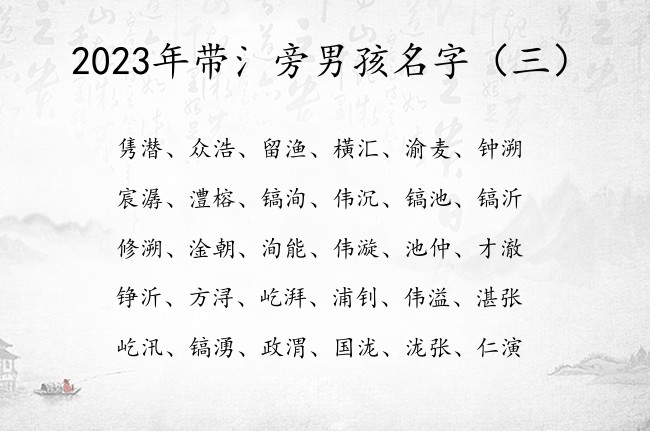 2023年带氵旁男孩名字（三）
隽潜、众浩、留渔、横汇、渝麦、钟溯
宸潺、澧榕、镐洵、伟沉、镐池、镐沂
修溯、淦朝、洵能、伟漩、池仲、才澈
铮沂、方浔、屹湃、浦钊、伟溢、湛张
屹汛、镐湧、政渭、国泷、泷张、仁演